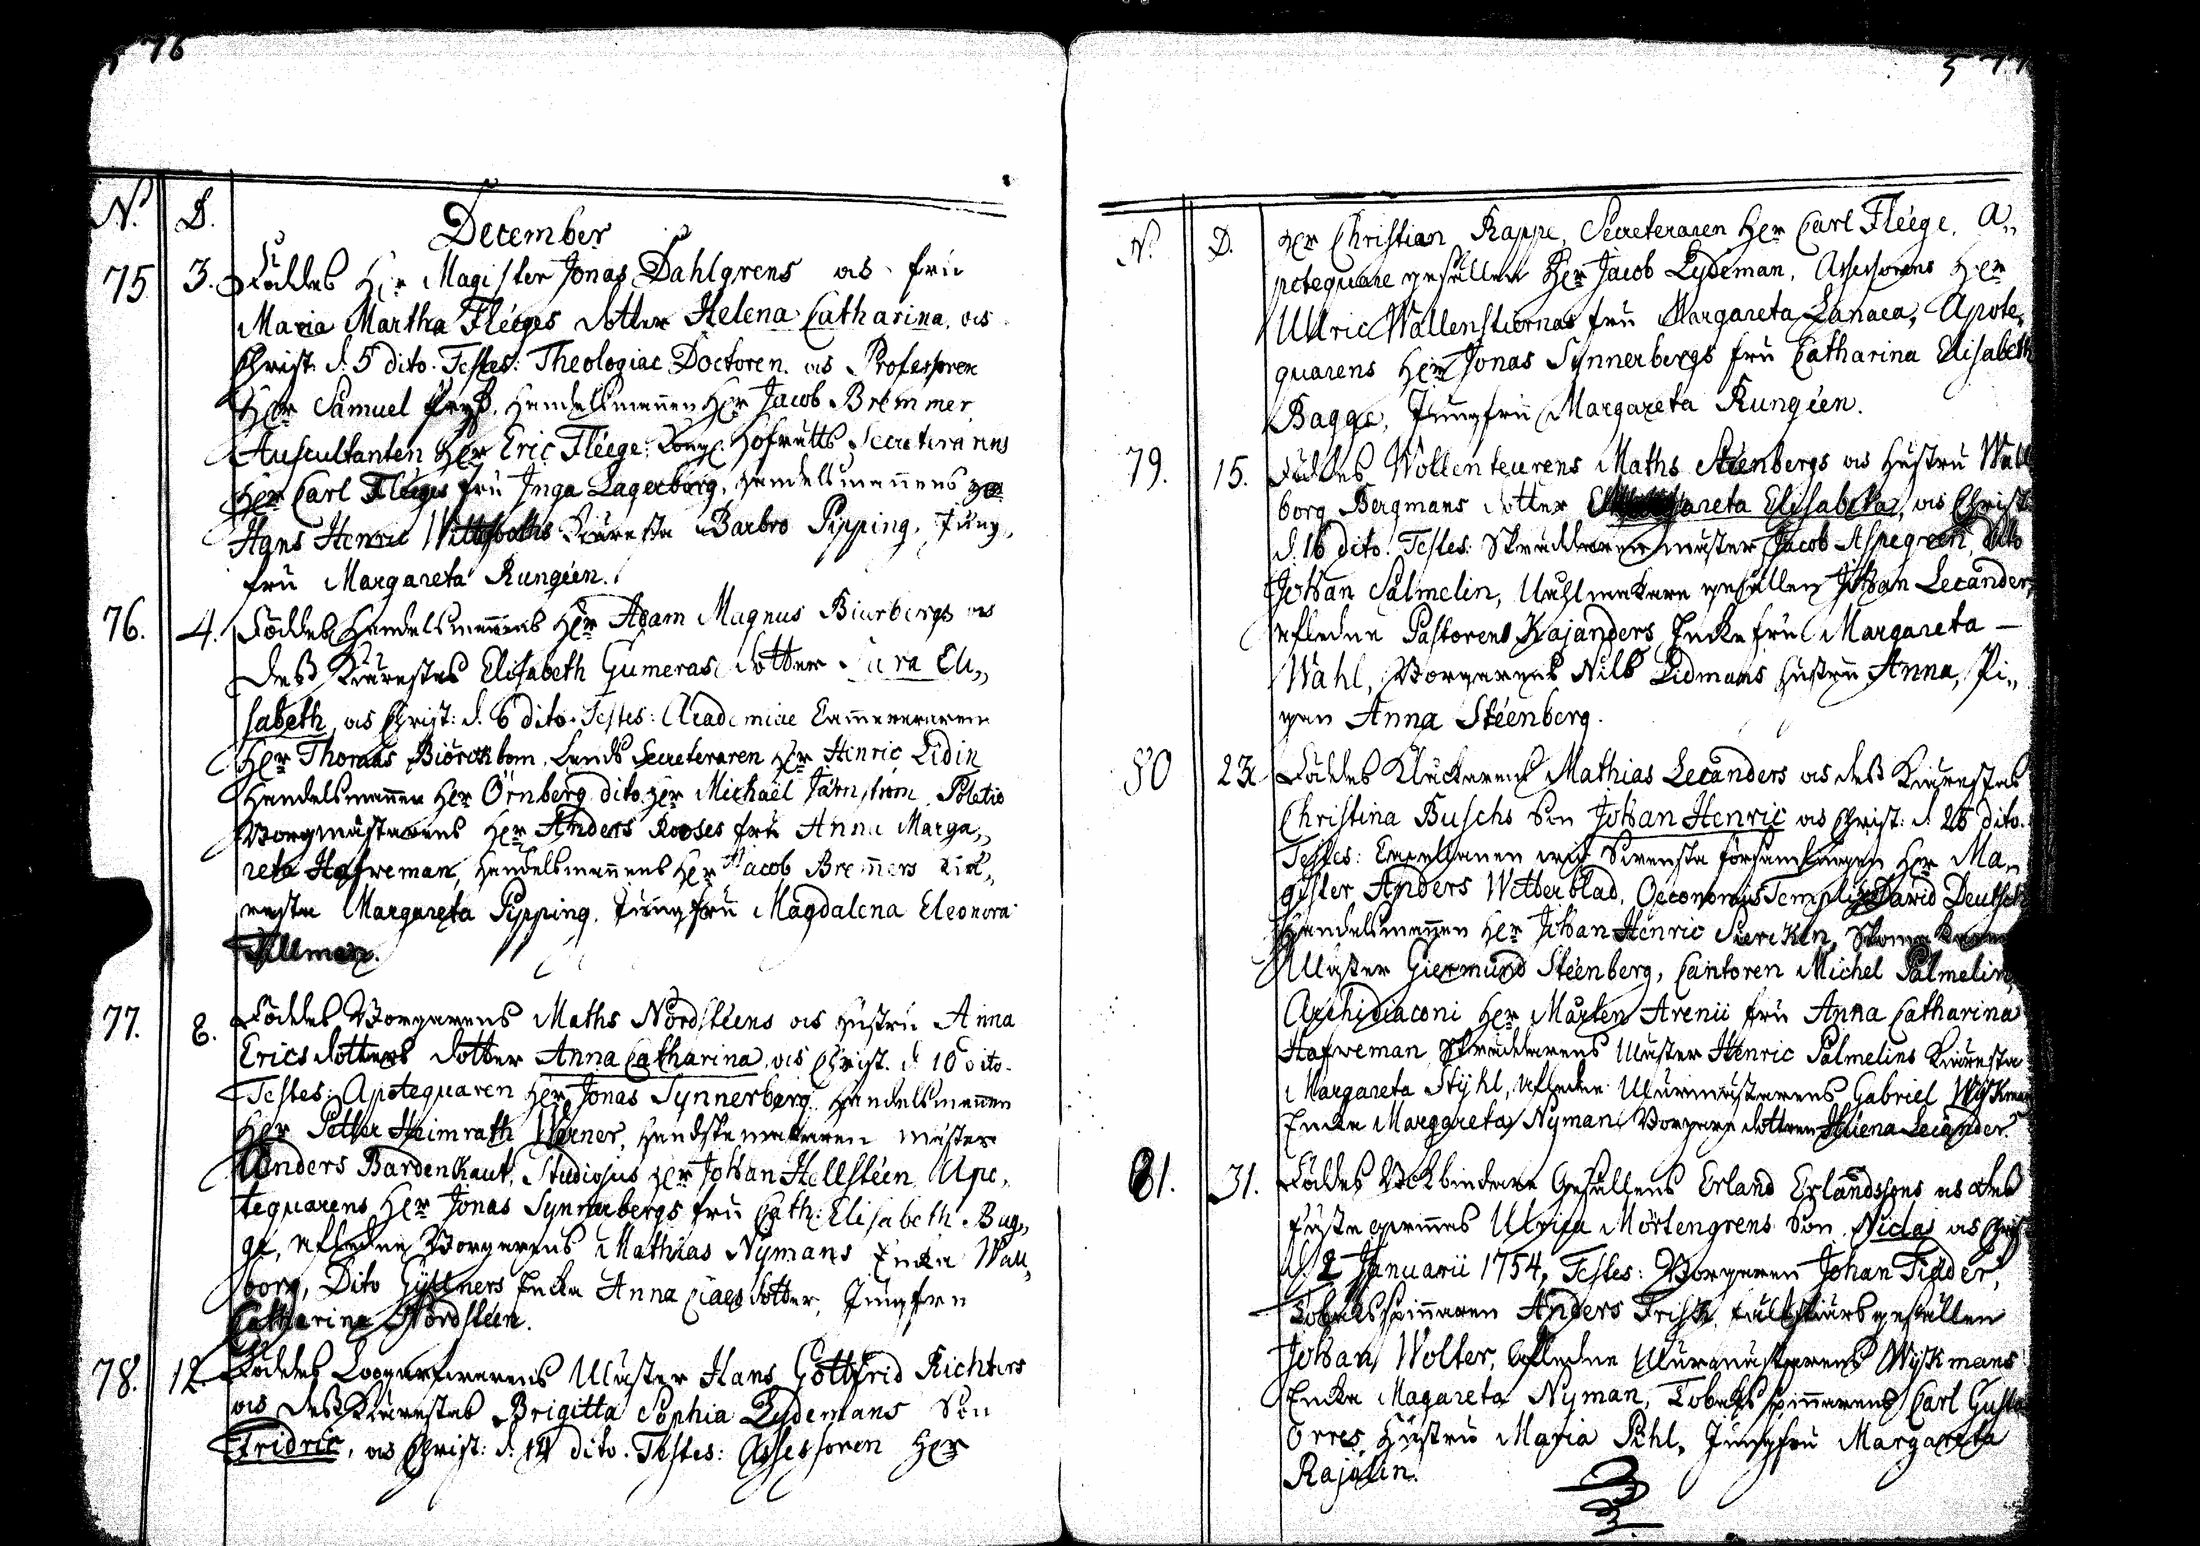 576
N.o D.
December
75 3. Föddes Her Magister Jonas Dahlgrens och fru
Maria Martha Fléeges dotter Helena Catharina, och
Christ. d. 5 dito. Testes: Theologiae Doctoren och Professoren
Her Samuel Pryss, Handelsmannen Her Jacob Bremmer
Auscultanten Her Eric Fléege, Kongl. Hofrätts Secreterarens
Her Carl Fléeges fru Inga Lagerborg, Handelsmannens Her
Hans Henric Wittfooths Kiäresta Barbro Pipping, Jung„
fru Margareta Rungéen.
76. 4. Föddes Handelsmannens Her Adam Magnus Biurbergs och
dess Kiärestas Elisabeth Gumeras dotter Sara Eli„
sabeth, och Christ: d. 6 dito. Testes: Academiae Cammereraren
Her Thomas Biörckbom, Lands Secreteraren Her Henric Lidin
Handelsmannen Her Örnberg, dito Her Michaël Järnström, Politie
Borgmästarens Her Anders Rooses fru Anna Marga„
reta Hafreman, Handelsmannens Her Jacob Bremers Kiä„
resta Margareta Pipping, Jungfru Magdalena Eleonora
77. 8. Föddes Borgarens Maths Nordstéens och Hustru Anna
Ericsdotters dotter Anna Catharina, och Christ. d. 10 dito.
Testes: Apotequaren Her Jonas Synnerberg, Handelsmannen
Her Petter Heimrath Werner, Handskemakaren Mäster
Anders Bardenkaut, Studiosus Her Johan Hellstéen, Apo„
tequarens Her Jonas Synnerbergs fru Cath: Elisabeth Bag„
ge, Afledne Borgarens Mathias Nymans Encka Wall„
borg, Dito Gyllners Encka Anna Claesdotter, Jungfru
Catharina Nordstéen.
78. 12. Föddes Loogarfwarens Mäster Hans Gottfrid Richters
och dess Kiärestas Brigitta Sophia Lydemans Son
Fridric, och Christ: d. 14 dito. Testes: Assessoren Her
577
N.o D.
Her Christian Rappe, Secreteraren Her Carl Fléege, A„
potequare gesällen Her Jacob Lydeman, Assessorens Her
Ullric Wallenstiernas fru Margareta Lanaea, Apote„
quarens Her Jonas Synnerbergs fru Catharina Elisabeth
Bagge, Jungfru Margareta Rungéen.
79. 15. Föddes Wollenteurens Maths Stenbergs och Hustru Wall
borg Bergmans dotter Elisabeta, och Christ.
d. 16 dito. Testes: Skräddaren mäster Jacob Aspegreen, dito
Johan Salmelin, Uhrmakare gesällen Johan Lecander,
Afledne Pastorens Kajanders Encke fru Margareta —
Wahl, Borgarens Nils Lidmans Hustru Anna, Pi„
gan Anna Stéenberg.
80 23 Föddes Klåckarens Mathias Lecanders och dess Kiärestas
Christina Buschs Son Johan Henric och Christ: d. 26 dito.
Testes: Capellanen wid Swenska försambligen Her Ma„
gister Anders Wetterblad, Oeconomus Templi David Deutsch
Handelsmannen Her Johan Henric Siercken, Skomakaren
Mäster Giermund Stéenberg, Cantoren Michel Palmelin,
Archidiaconi Her Mårten Arenii fru Anna Catharina
Hafreman, Skräddarens Mäster Henric Palmelins Kiäresta
Margareta Stjhl, Afledne Murmästarens Gabriel Wijkmans
Encka Margareta Nyman, Borgare dottren Helena Lecander.
81. 31. Föddes Bokbindare Gesällens Erland Erlandssons och dess
Fästeqvinnas Ulrica Mörtengrens Son Niclas och Christ
d. 2 Januarii 1754, Testes: Borgaren Johan Fidder,
Tobaksspinnaren Anders Frisk, fältskiärsgesällen
Johan Wolter, Afledne Murmästarens Wijkmans
Encka Magareta Nyman, Tobaksspinnarens Carl Gusta
Orres, Hustru Maria Pihl, Jungfru Margareta
Rajalin.